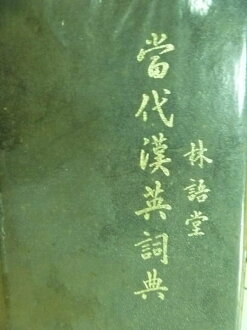 當代漢英詞典
林語堂